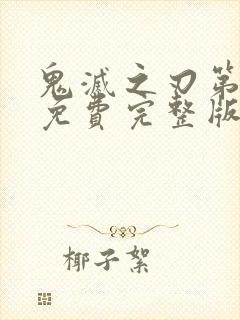 鬼滅之刃第
免費完整版
椰子絮